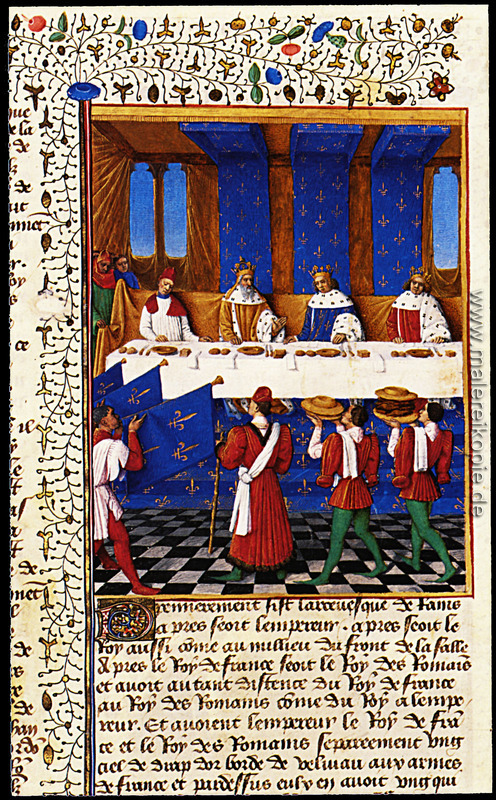 que
de la
de
de
ce
il
de
Premierement sist larcevesque de Rains
apres seoit lempereur . apres seoit le
roy aussi come au millieu du front de la salle
Apres le Roy de france seoit le Roy des Romais
et avoit autant distence du Roy de france
au Roy des Romains come du Roy a lempe
reur. Et avoient lempereur le Roy de fra
ce et le Roy des Romains separeement ung
ciel de drap dor borde de veluiau aux armes
de france et par dessus eulx en avoit ung qui
www.malereikopie.de